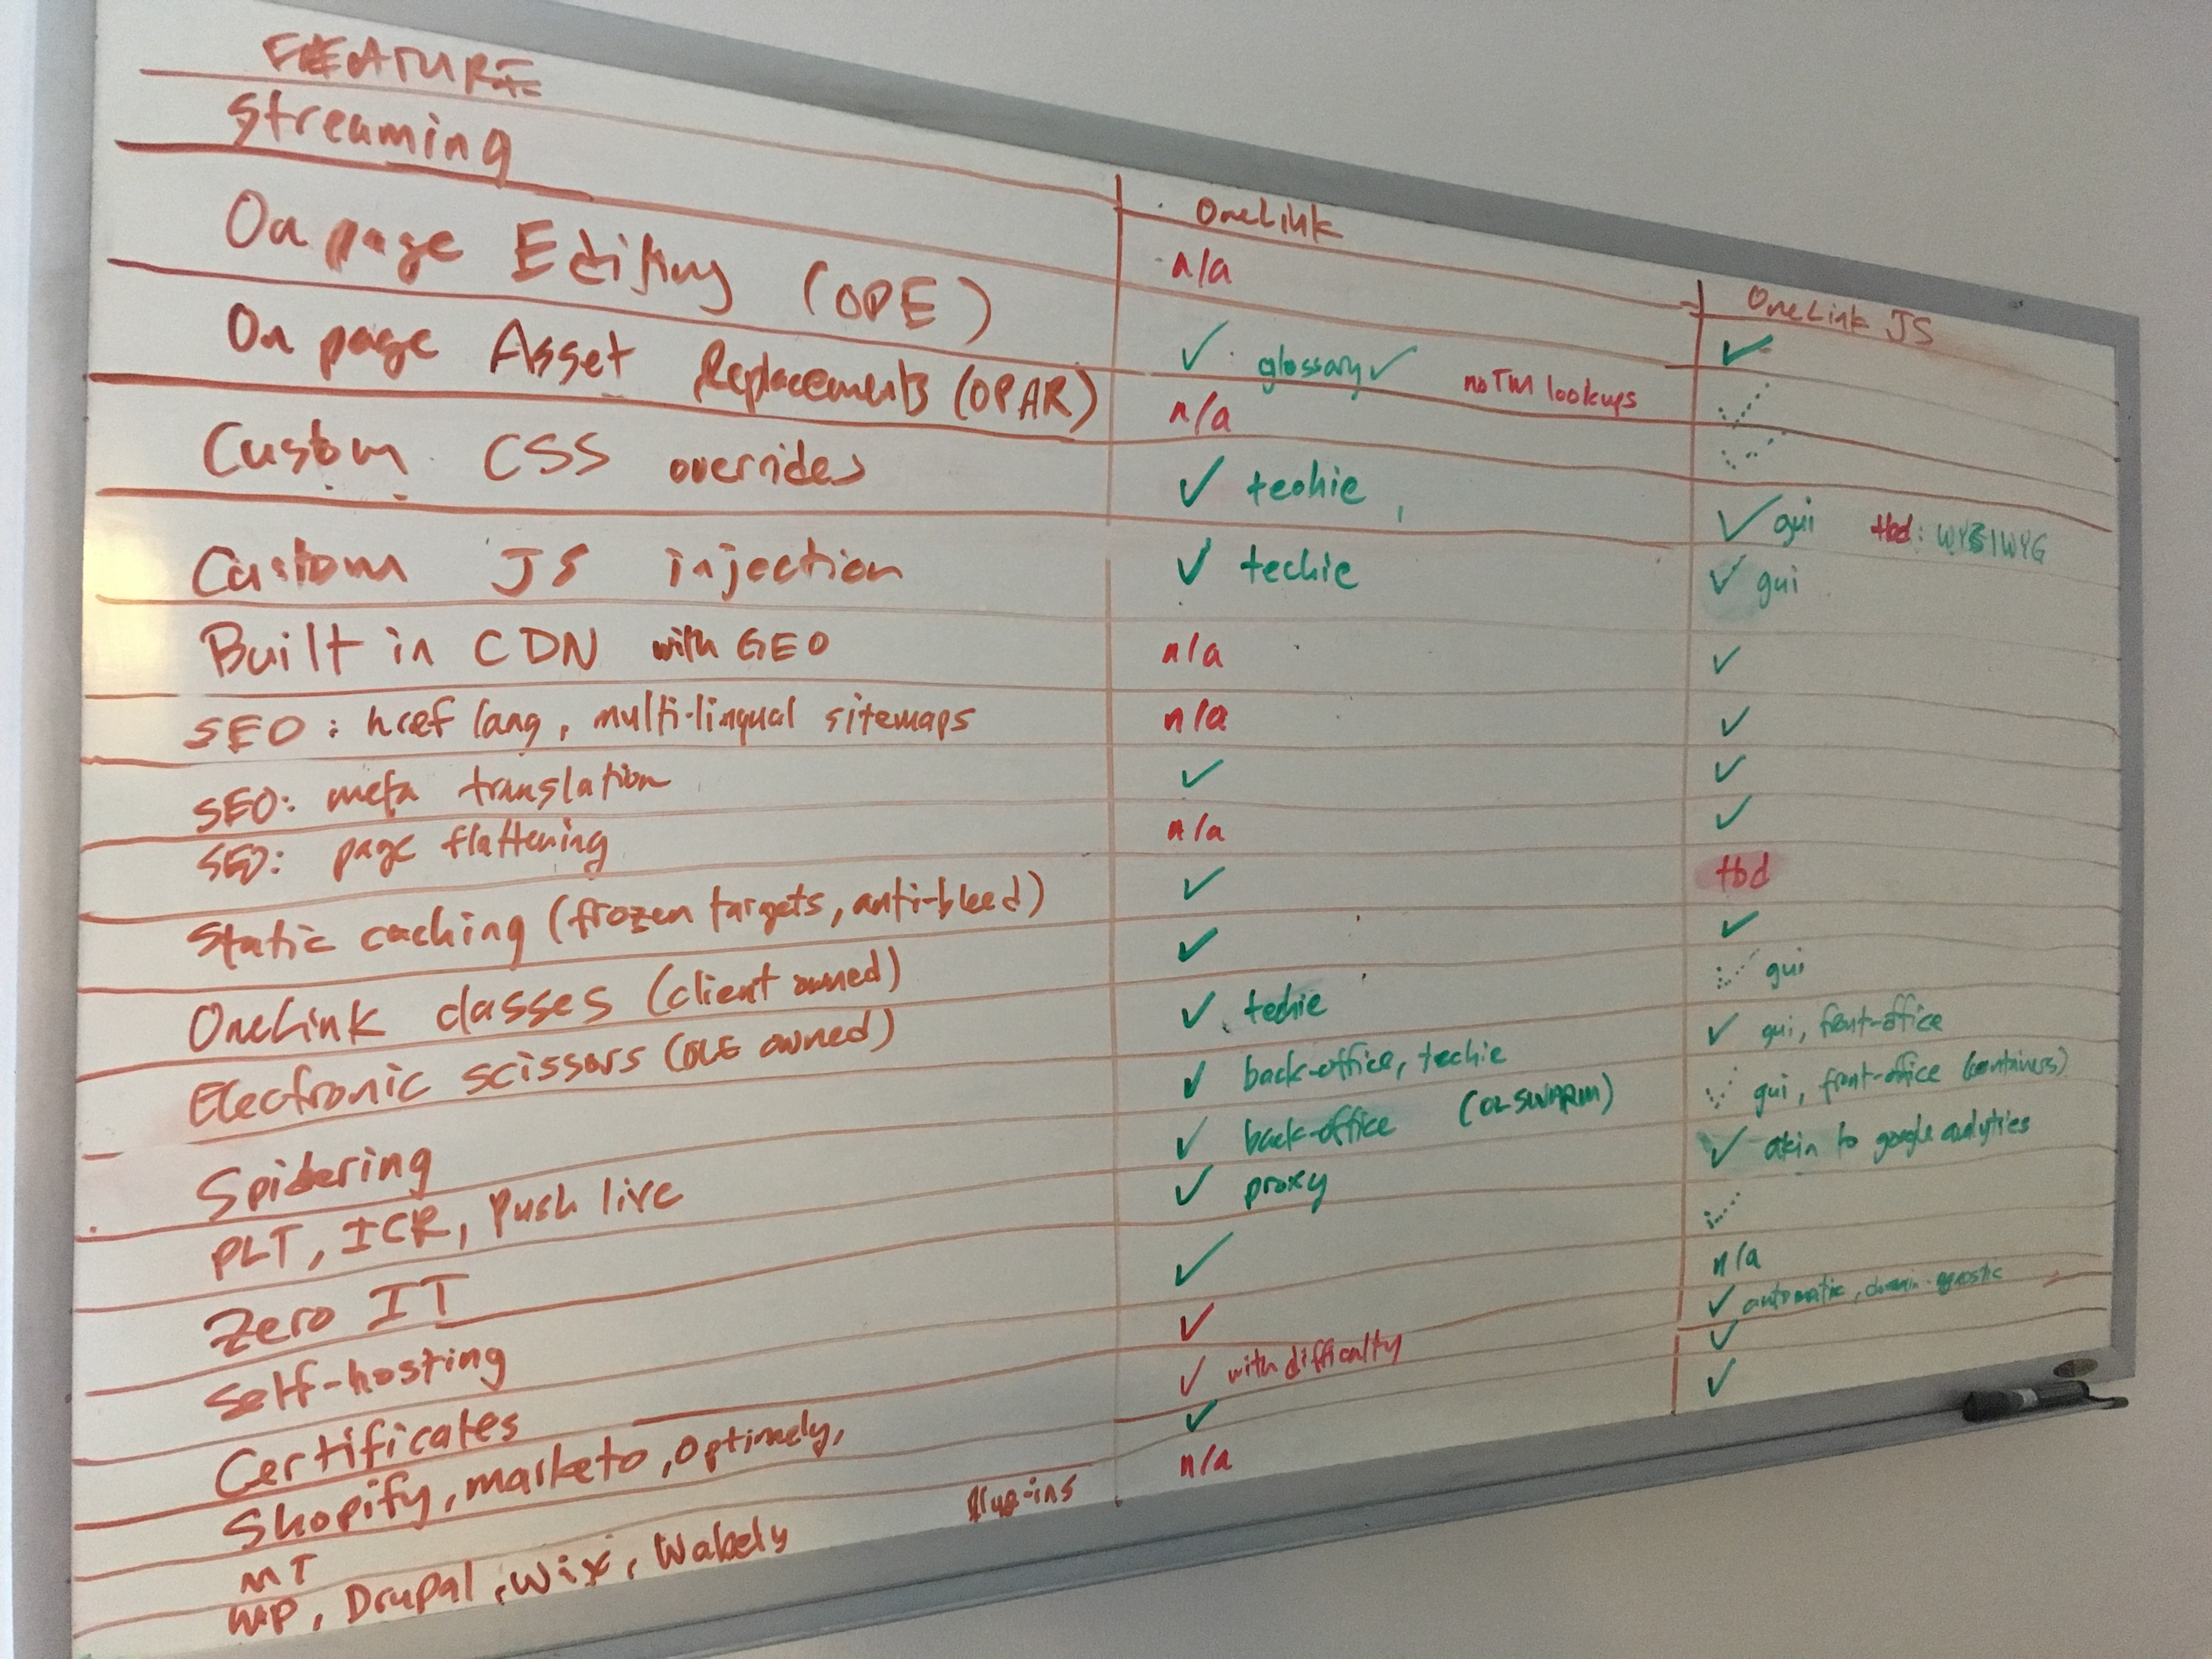 FEATURE OneLink OneLink JS
Streaming n/a ✓
On page Editing (OPE) ✓ glossary ✓ no TM lookups ✓
On page Asset Replacements (OPAR) n/a ✓
Custom CSS overrides ✓ techie ✓ gui tbd: WYSIWYG
Custom JS injection ✓ techie ✓ gui
Built in CDN with GEO n/a ✓
SEO: href lang, multi-lingual sitemaps n/a ✓
SEO: meta translation ✓ ✓
SEO: page flattening n/a ✓
Static caching (frozen targets, anti-bleed) ✓ tbd
OneLink classes (client owned) ✓ ✓
Electronic scissors (OLE owned) ✓ techie ✓ gui
Spidering ✓ back-office, techie ✓ gui, front-office
PLT, ICR, Push live ✓ back-office (OL SWARM) ✓ gui, front-office (containers)
Zero IT ✓ proxy ✓ akin to google analytics
Self-hosting ✓ ✓
Certificates ✓ n/a
Shopify, marketo, Optimely, ✓ with difficulty ✓ automatic, domain-agnostic
MT ✓ ✓
WP, Drupal, Wix, Wabely Plug-ins n/a ✓